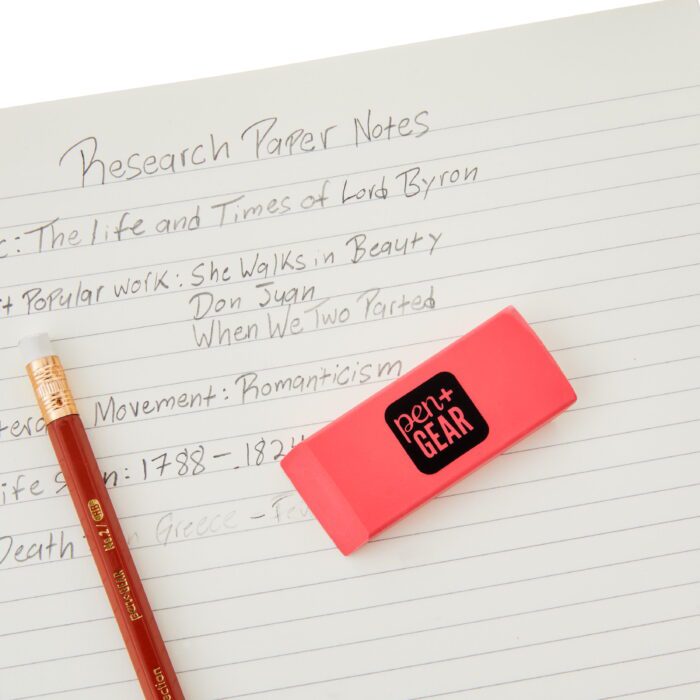 Research Paper Notes
c: The life and Times of Lord Byron
t Popular work: She Walks in Beauty
Don Juan
When We Two Parted
Movement: Romanticism
ife n: 1788 - 1824
Death in Greece - Fev
pen+
GEAR
No.2/HB
pen+GEAR